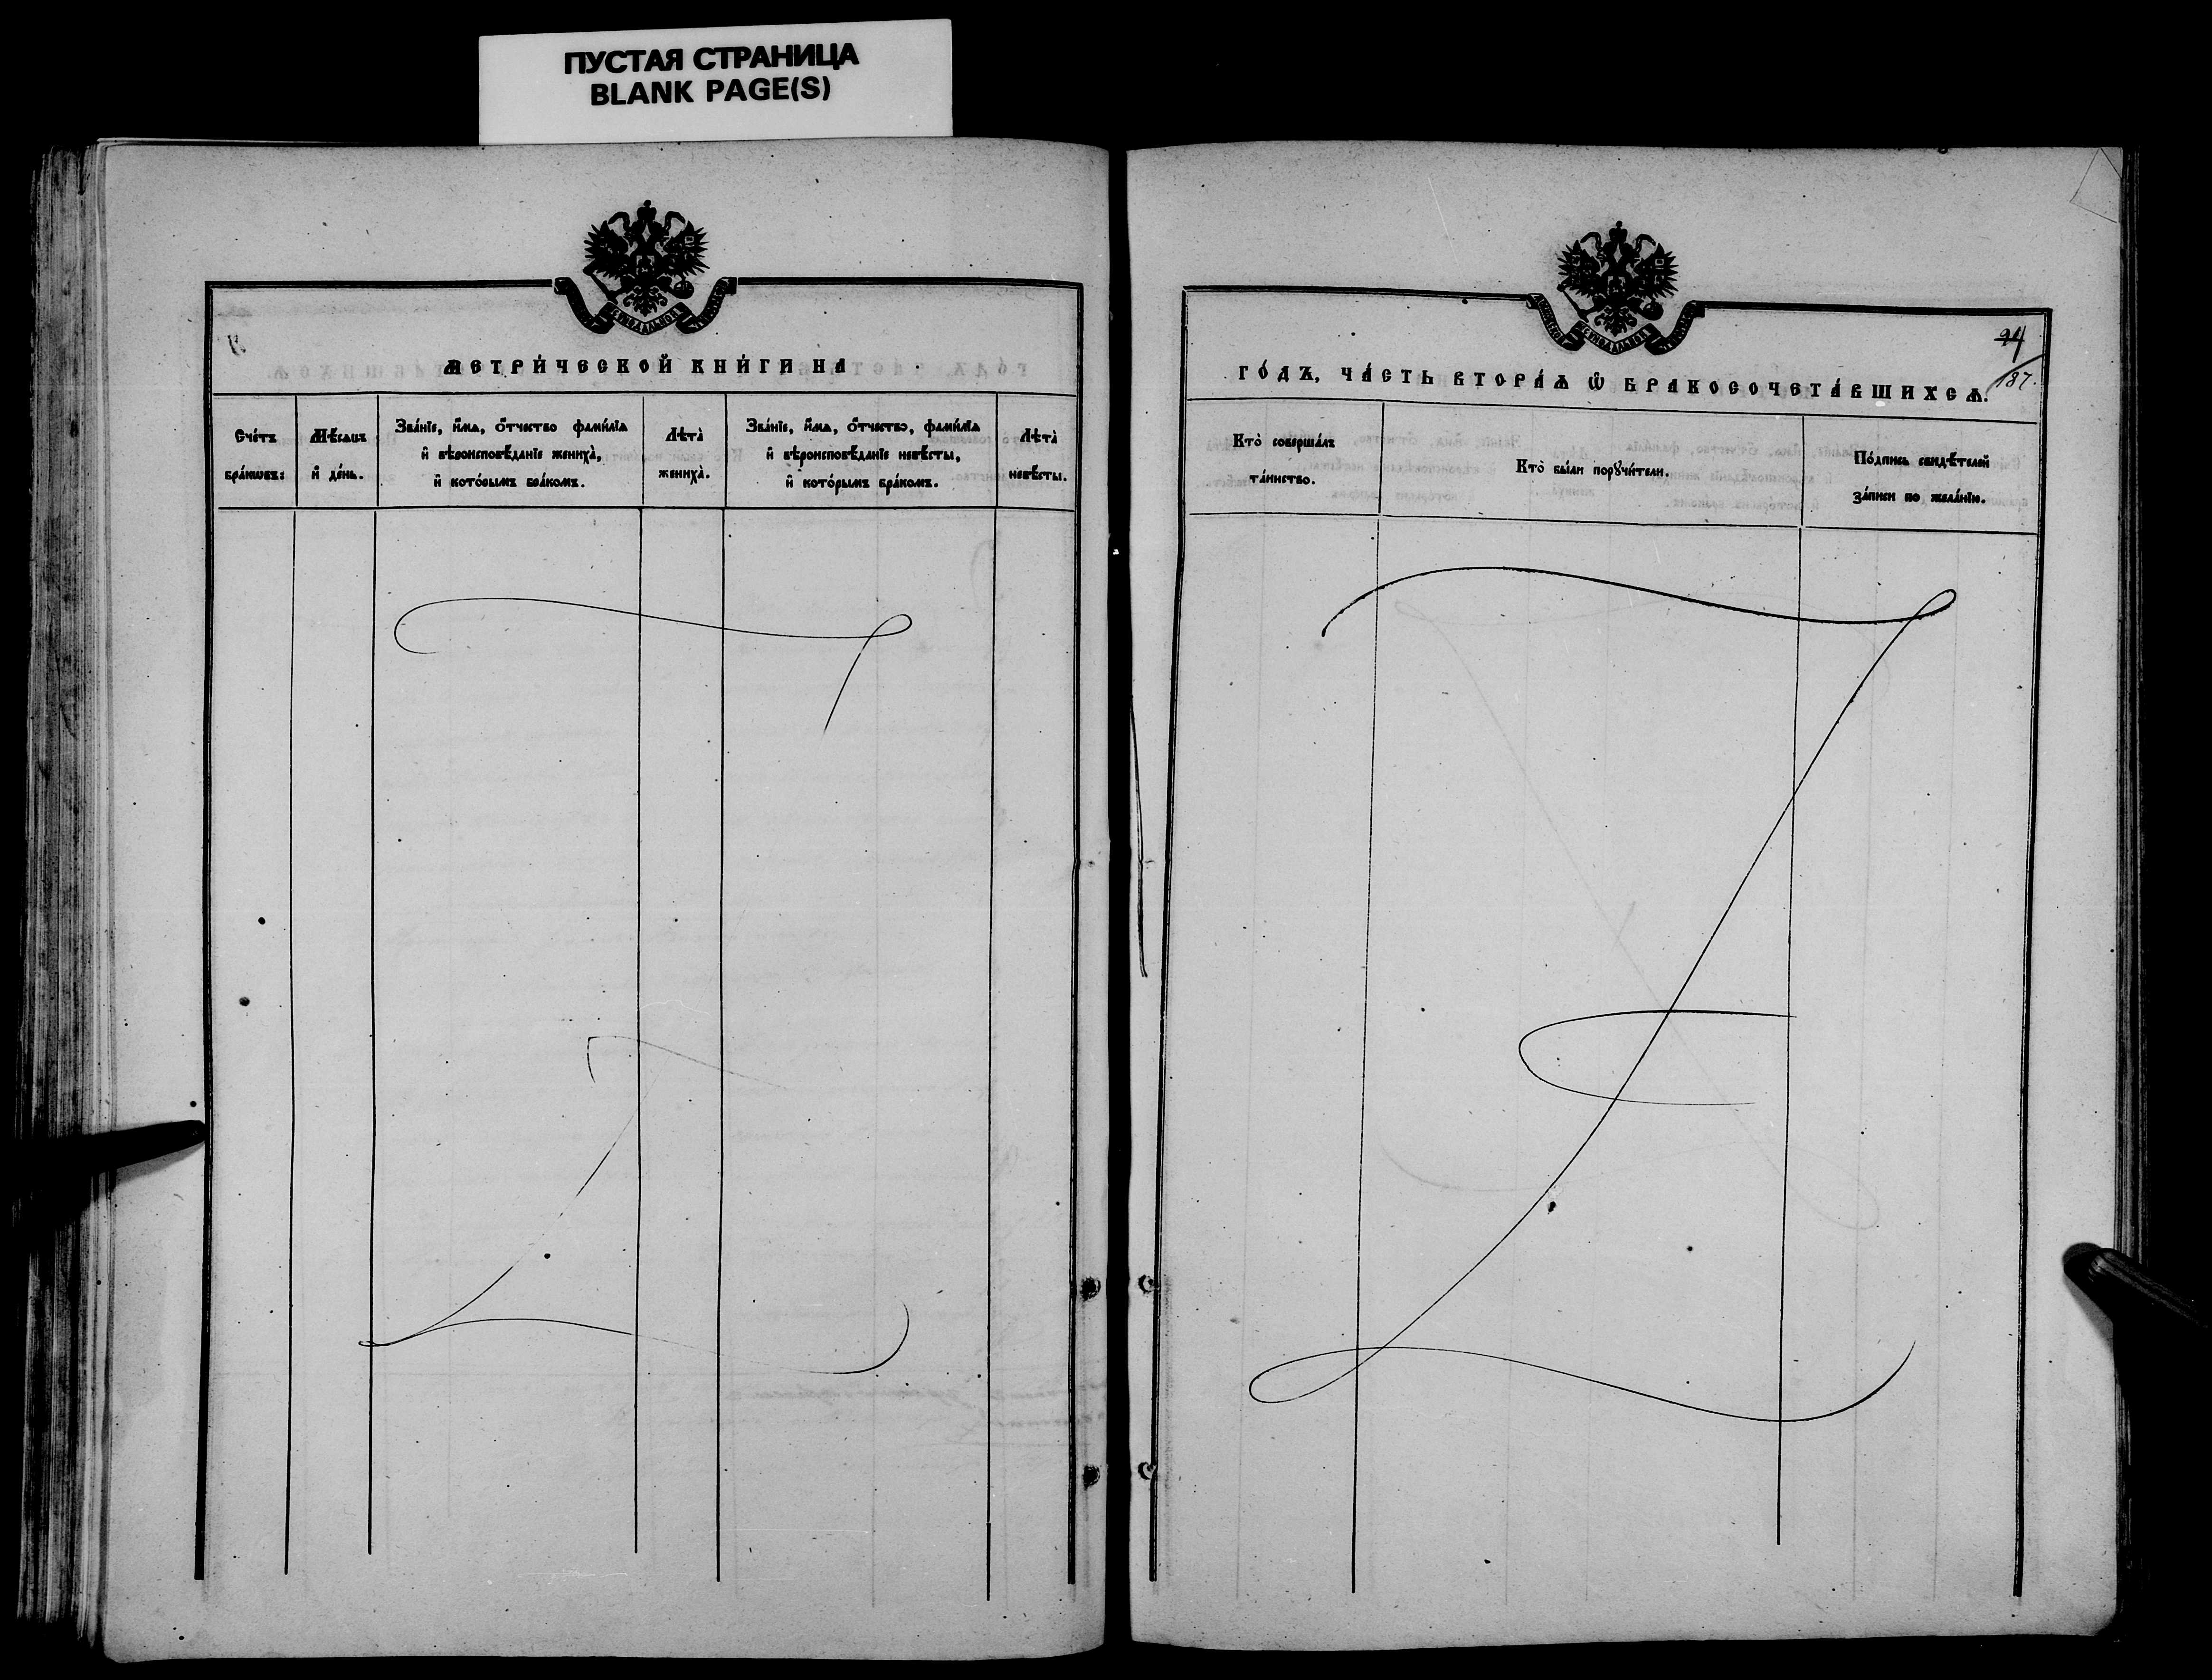 ПУСТАЯ СТРАНИЦА
BLANK PAGE(S)
МЕТРИ́ЧЕСКОЙ КНИ́ГИ НА
Сче́тъ
бра́кѡвъ:
Мѣ́сѧцъ
и҆ де́нь.
Зва́нїе, и҆́мѧ, ѻ҆́тчество фами́лїѧ
и҆ вѣроисповѣ́данїе жениха̀,
и҆ кото́рымъ бра́комъ.
Лѣта̀
жениха̀.
Зва́нїе, и҆́мѧ, ѻ҆́тчество, фами́лїѧ
и҆ вѣроисповѣ́данїе невѣ́сты,
и҆ кото́рымъ бра́комъ.
Лѣта̀
невѣ́сты.
СѴНОДАЛЬНОЙ
94
187.
ГО́ДЪ, ЧА́СТЬ ВТОРА́Ѧ Ѡ҆ БРАКОСОЧЕТА́ВШИХСѦ.
Кто̀ соверша́лъ
та́инство.
Кто̀ бы́ли порꙋчи́тели.
По́дпись свидѣ́телей
за́писи по жела́нїю.
СѴНОДАЛЬНОЙ